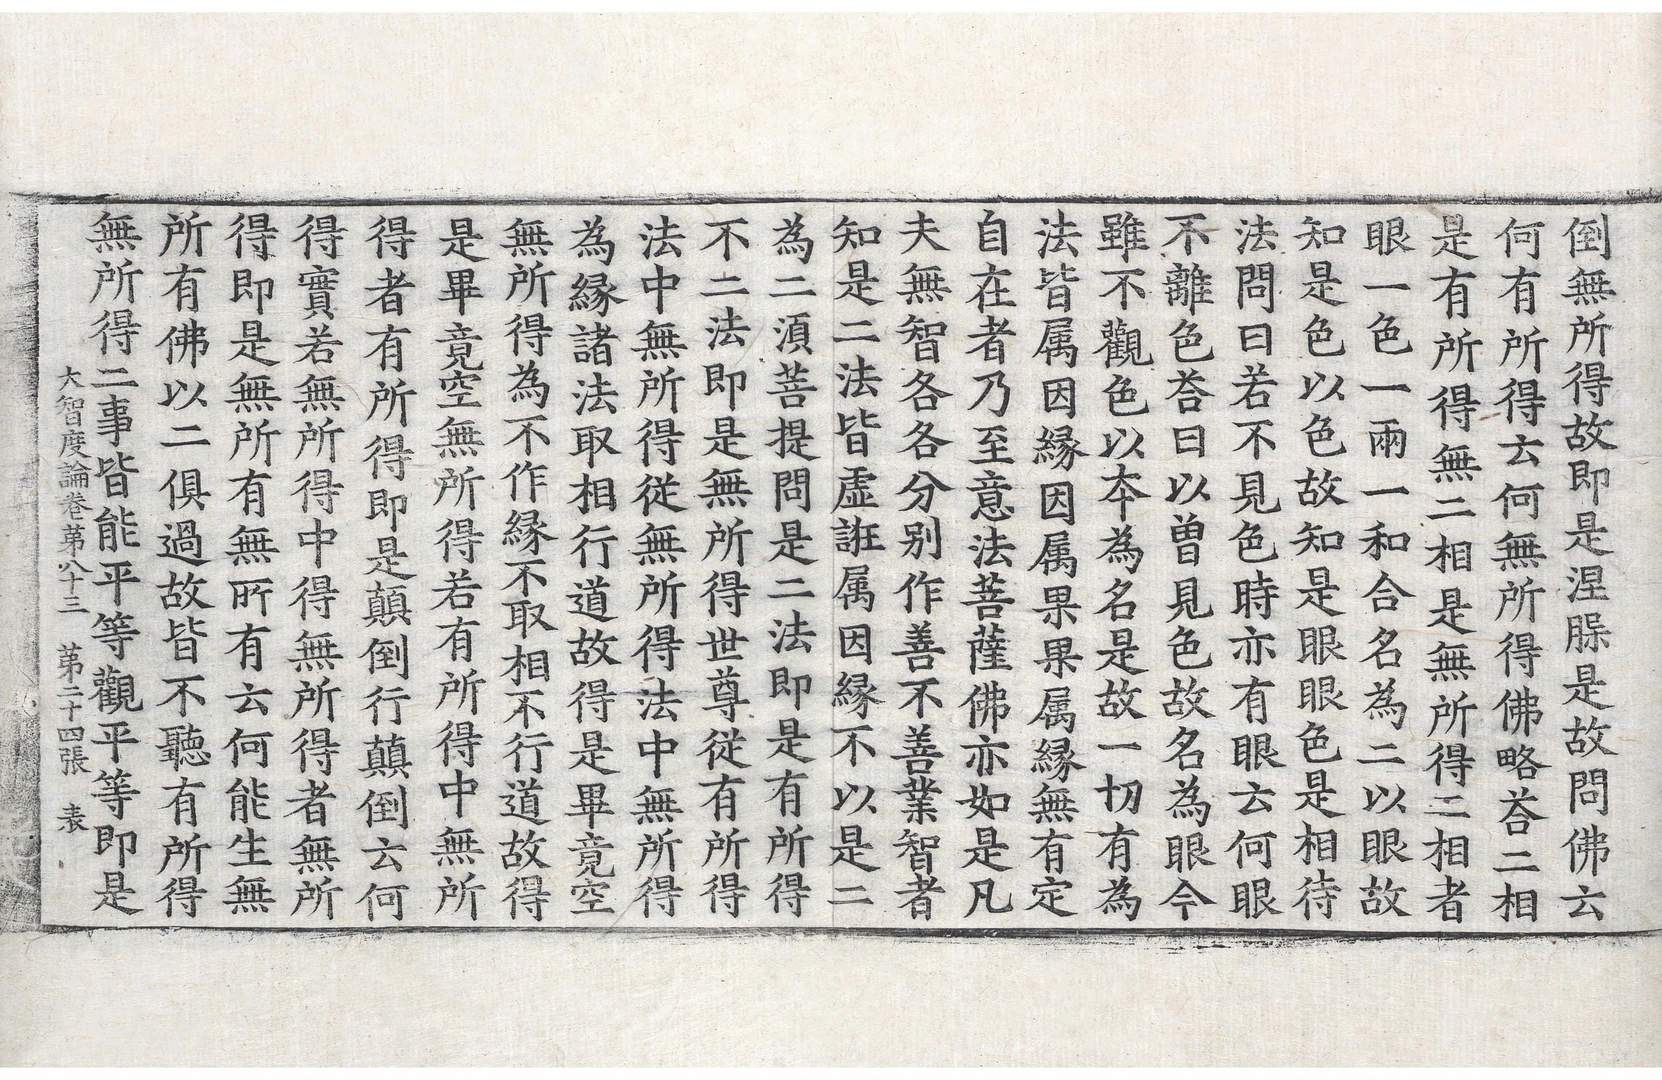 倒無所得故即是涅脲是故問佛云
何有所得云何無所得佛略荅二相
是有所得無二相是無所得二相者
眼一色一兩一和合名為二以眼故
知是色以色故知是眼眼色是相待
法問曰若不見色時亦有眼云何眼
不離色荅曰以曽見色故名為眼今
雖不觀色以本為名是故一切有為
法皆属因縁因属果果属縁無有定
自在者乃至意法菩薩佛亦如是凡
夫無智各各分别作善不善業智者
知是二法皆虛誑属因縁不以是二
為二湏菩提問是二法即是有所得
不二法即是無所得世尊從有所得
法中無所得從無所得法中無所得
為縁諸法取相行道故得是畢竟空
無所得為不作縁不取相不行道故得
是畢竟空無所得若有所得中無所
得者有所得即是顛倒行顛倒云何
得實若無所得中得無所得者無所
得即是無所有無所有云何能生無
所有佛以二俱過故皆不聽有所得
無所得二事皆能平等觀平等即是
大智度論卷苐八十三 苐二十四張 表